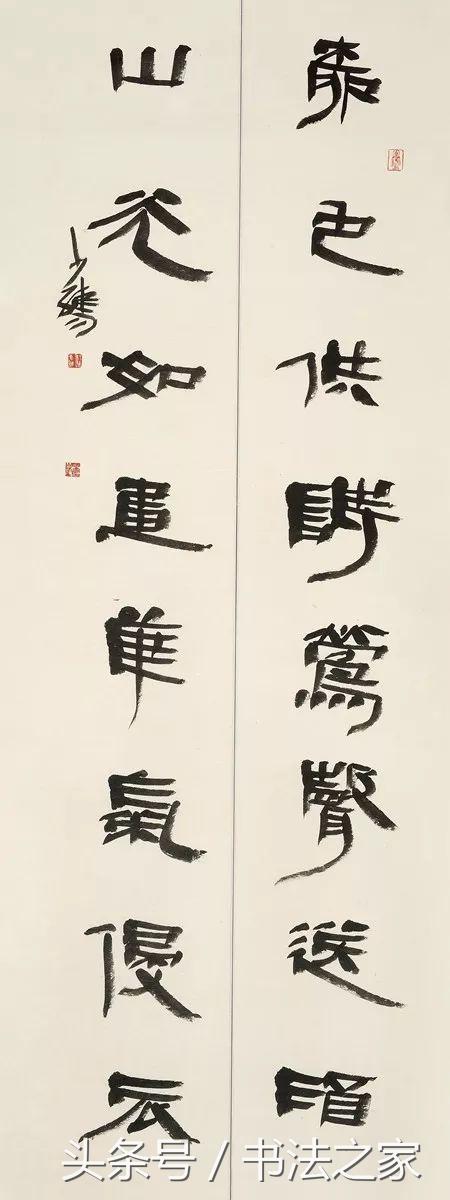 色供詩鶯聲送酒
山光如畫華氣侵
头条号 / 书法之家